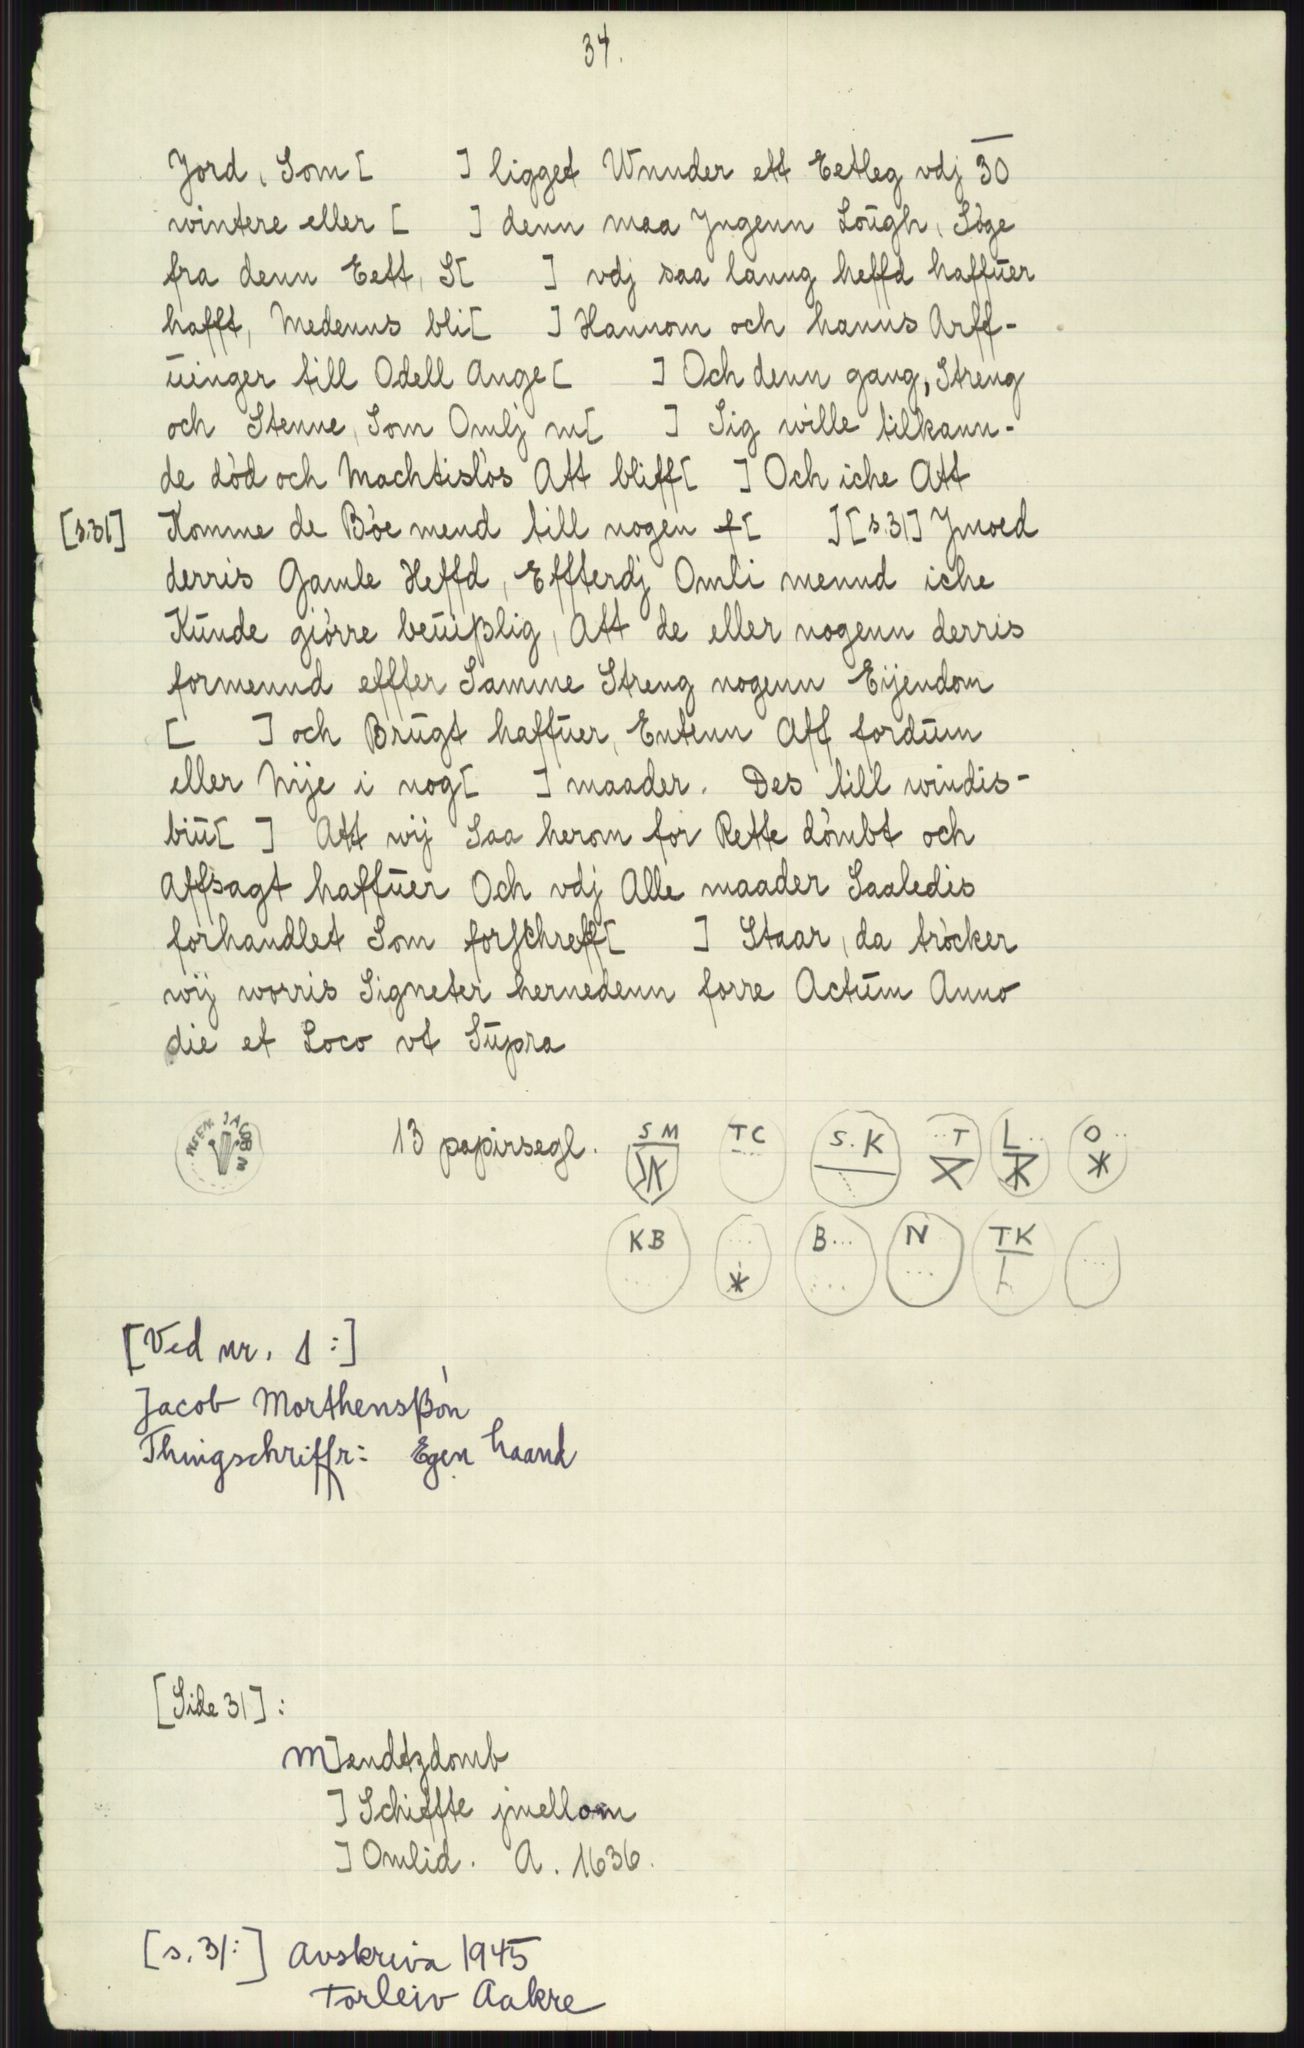 34.
Jord, Som [ ] ligget Wnnder ett Eetleg vdj 30
wintere eller [ ] denn maa Jngenn Loŭgh, Söge
fra denn Eett, S[ ] vdj saa lanng heffd haffŭer
hafft, Medenns bli[ ] Hannom och hanns Arff-
ŭinger till Odell Ange[ ] Och denn gang, Streng
och Stenne, Som Omlj m[ ] Sig wille tilkann-
de död och Machtislös Att bliff[ ] Och iche Att
[s.31] Komme de Böe mend till nogen f[ ] [s.31] Jmoed
derris Gamle Heffd, Effterdj Omli mennd iche
Kŭnde giörre beŭißlig, Att de eller nogenn derris
formennd effter Samme Streng nogenn Eijendom
[ ] och Brŭgt haffŭer, Entenn Aff fordŭm
eller Nije i nog[ ] maader. Des till windis-
biŭ[ ] Att wij Saa herom for Rette dömbt och
Affsagt haffŭer Och vdj Alle maader Saaledis
forhandlet Som forschreff[ ] Staar, da tröcker
wij worris Signeter hernedenn forre Actŭm Anno
die et Loco vt Sŭpra
JACOB M
13 papirsegl.
S M
TC
S. K
..T
L..
O..
KB
B...
N
TK
[Ved nr. 1:]
Jacob Morthensßön
Thingschriffr: Egen haand
[Side 31]:
M]endtzdomb
] Schiffte jmellom
] Omlid. A. 1636.
[s. 31:] Avskriva 1945
Torleiv Aakre